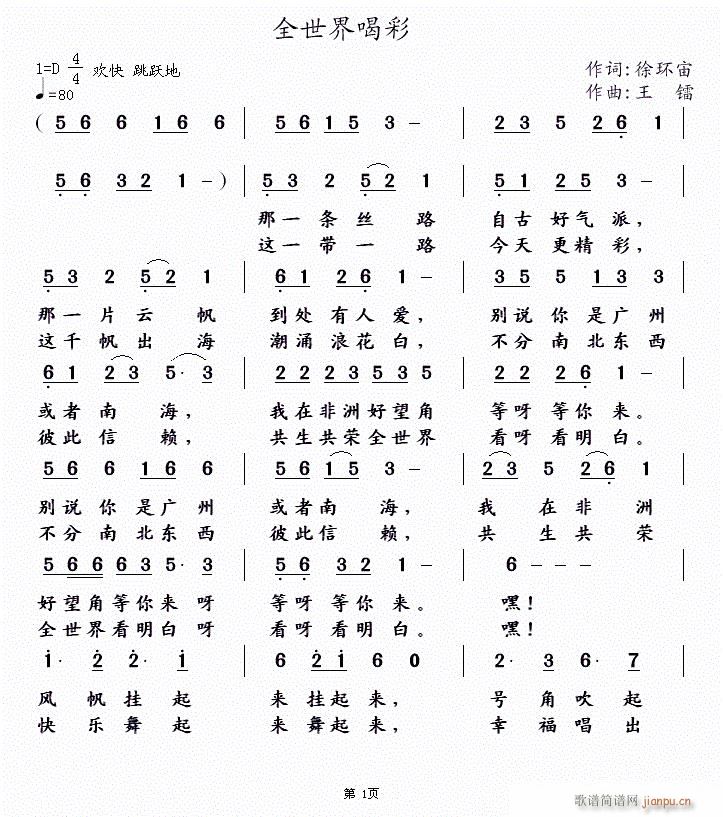 全世界喝彩
1=D 4/4 欢快 跳跃地
♩=80
作词:徐环宙
作曲:王 镭
( 5 6 6 1 6 6 | 5 6 1 5 3 – | 2 3 5 2 6 1
5 6 3 2 1 – ) | 5 3 2 5 2 1 | 5 1 2 5 3 – |
那一条丝 路 自古 好气 派,
这一带一 路 今天 更精 彩,
5 3 2 5 2 1 | 6 1 2 6 1 – | 3 5 5 1 3 3 |
那一片云 帆 到处 有人 爱, 别说 你 是广 州
这千帆出 海 潮涌 浪花 白, 不分 南 北东 西
6 1 2 3 5· 3 | 2 2 2 3 5 3 5 | 2 2 2 6 1 – |
或者 南 海, 我在非洲好望角 等呀 等你 来。
彼此 信 赖, 共生共荣全世界 看呀 看明 白。
5 6 6 1 6 6 | 5 6 1 5 3 – | 2 3 5 2 6 1
别说 你 是广 州 或者南 海, 我 在 非 洲
不分 南 北东 西 彼此信 赖, 共 生 共 荣
5 6 6 6 3 5· 3 | 5 6 3 2 1 – | 6 – – – |
好望角等你来 呀 等呀 等你 来。 嘿!
全世界看明白 呀 看呀 看明 白。 嘿!
i· 2 2· i | 6 2 i 6 0 | 2· 3 6· 7 |
风 帆 挂 起 来 挂起 来, 号 角 吹 起
快 乐 舞 起 来 舞起 来, 幸 福 唱 出
第 1页
歌谱简谱网 jianpu.cn